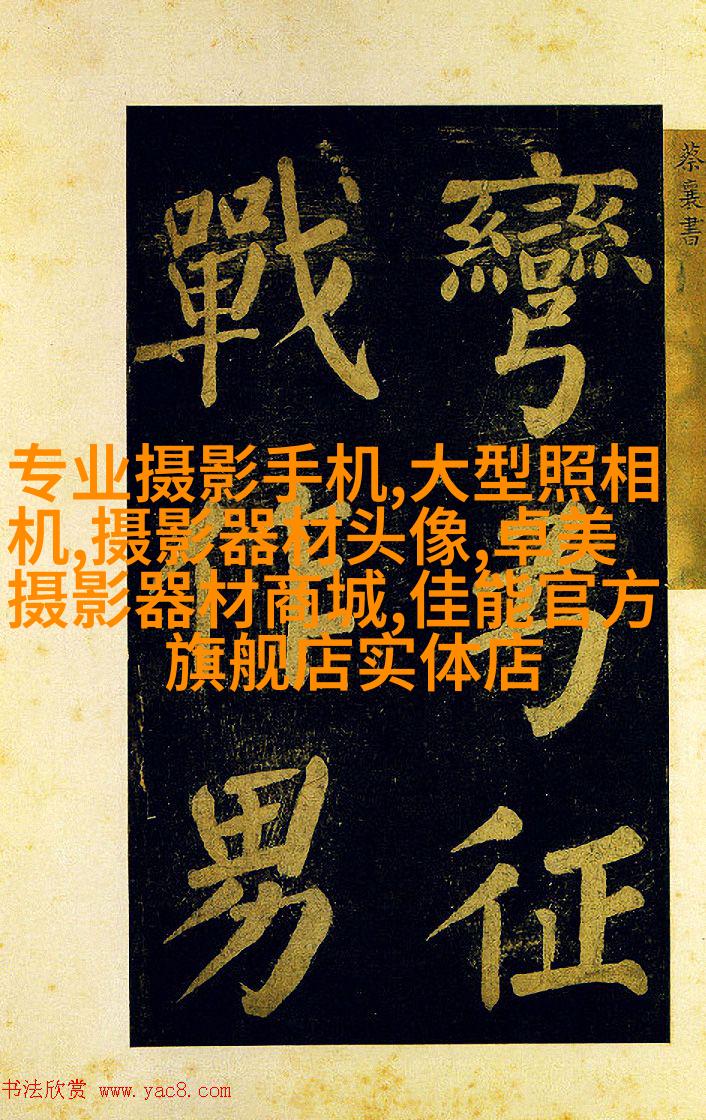 蔡襄書
彎弓征
戰作男
专业摄影手机,大型照相
机,摄影器材头像,卓美
摄影器材商城,佳能官方
旗舰店实体店
书法欣赏 www.yac8.com